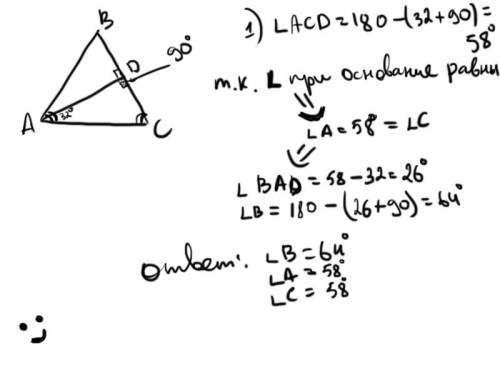 B
D
90°
A
32°
C
1) ∠ACD = 180 - (32 + 90) =
58°
т.к. ∠ при основание равны
∠A = 58° = ∠C
∠BAD = 58 - 32 = 26°
∠B = 180 - (26 + 90) = 64°
Ответ: ∠B = 64°
∠A = 58°
∠C = 58°